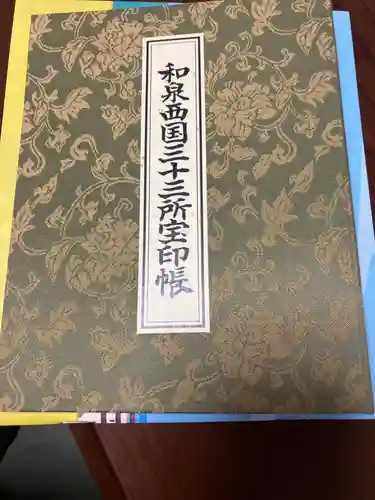 和泉西国三十三所宝印帳